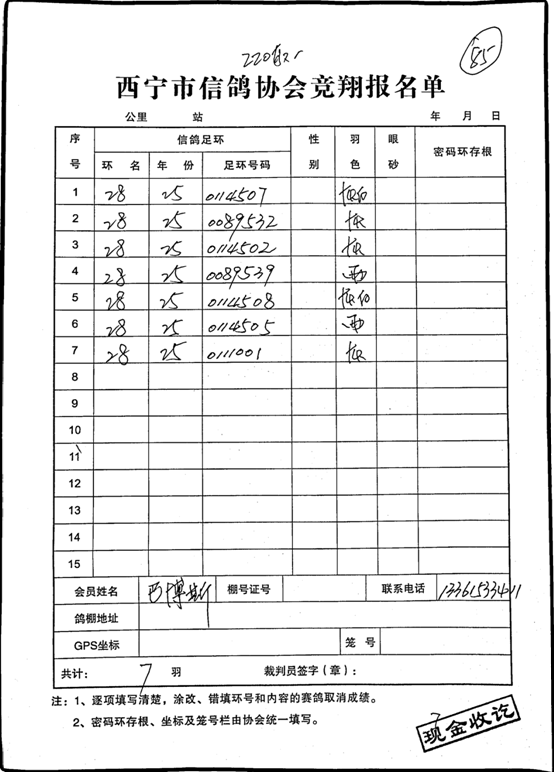 220
85
西宁市信鸽协会竞翔报名单
公里 站 年 月 日
序号 信鸽足环 性别 羽色 眼砂 密码环存根
环 名 年 份 足环号码
1 28 25 0114507 灰白
2 28 25 0089532 灰
3 28 25 0114502 灰
4 28 25 0089539
5 28 25 0114508 灰白
6 28 25 0114505
7 28 25 0111001 灰
8
9
10
11
12
13
14
15
会员姓名 博斯 棚号证号 联系电话 13361533411
鸽棚地址
GPS坐标 笼 号
共计: 7 羽 裁判员签字(章):
注:1、逐项填写清楚,涂改、错填环号和内容的赛鸽取消成绩。
2、密码环存根、坐标及笼号栏由协会统一填写。
现金收讫